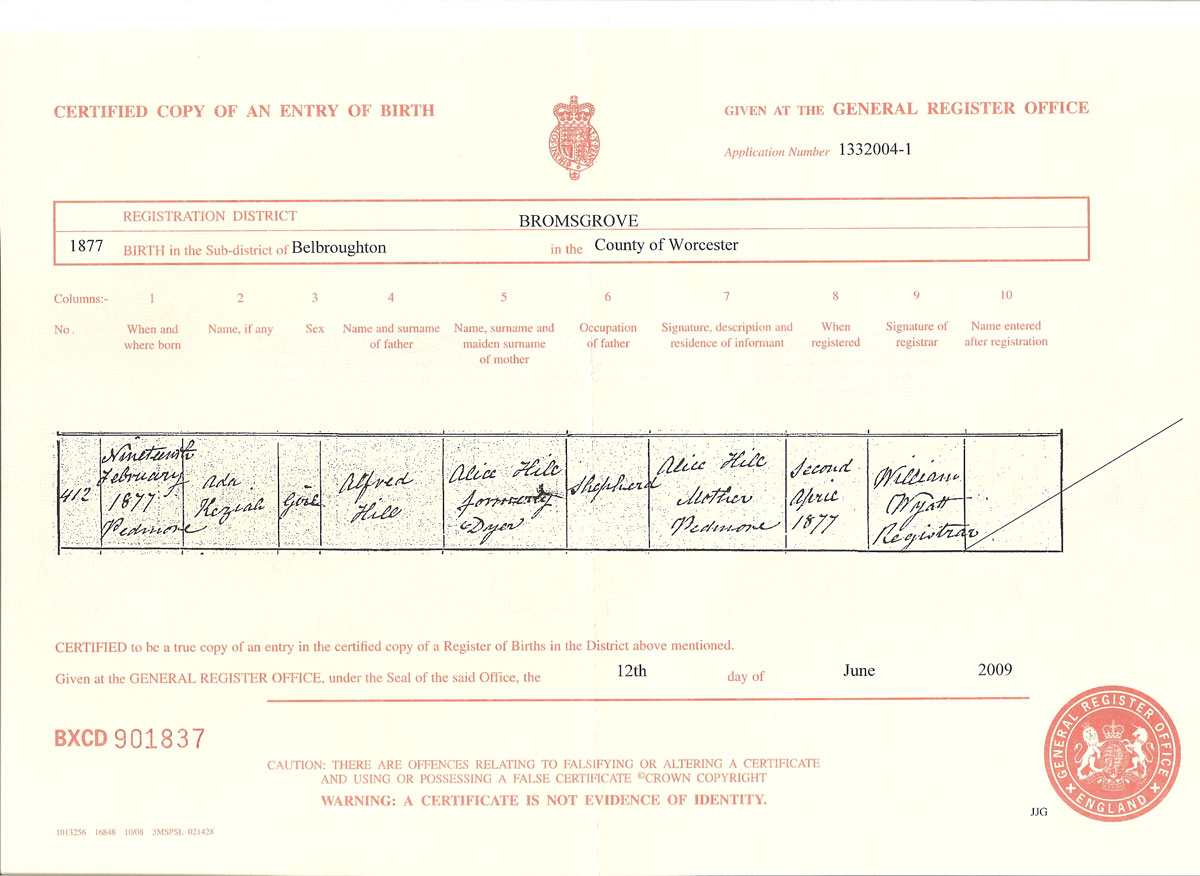 CERTIFIED COPY OF AN ENTRY OF BIRTH
GIVEN AT THE GENERAL REGISTER OFFICE
Application Number 1332004-1
REGISTRATION DISTRICT BROMSGROVE
1877 BIRTH in the Sub-district of Belbroughton in the County of Worcester
Columns:- 1 2 3 4 5 6 7 8 9 10
No. When and where born
Name, if any
Sex
Name and surname of father
Name, surname and maiden surname of mother
Occupation of father
Signature, description and residence of informant
When registered
Signature of registrar
Name entered after registration
412
Nineteenth
February
1877
Pedmore
Ada
Keziah
Girl
Alfred
Hill
Alice Hill
formerly
Dyer
Shepherd
Alice Hill
Mother
Pedmore
Second
April
1877
William
Wyatt
Registrar
CERTIFIED to be a true copy of an entry in the certified copy of a Register of Births in the District above mentioned.
Given at the GENERAL REGISTER OFFICE, under the Seal of the said Office, the 12th day of June 2009
BXCD 901837
CAUTION: THERE ARE OFFENCES RELATING TO FALSIFYING OR ALTERING A CERTIFICATE
AND USING OR POSSESSING A FALSE CERTIFICATE ©CROWN COPYRIGHT
WARNING: A CERTIFICATE IS NOT EVIDENCE OF IDENTITY.
GENERAL REGISTER OFFICE
ENGLAND
JJG
1013256 16848 10/08 3MSPSL 021428